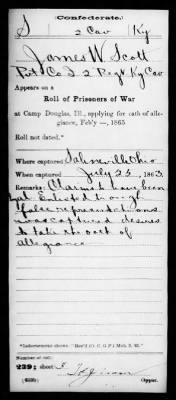 (Confederate.)
S 2 Cav Ky
James W. Scott
Pvt Co I 2 Regt Ky Cav
Appears on a
Roll of Prisoners of War
at Camp Douglas, Ill., applying for oath of allegiance, Feb'y —, 1865
Roll not dated.*
Where captured Salineville, Ohio
When captured July 25, 1863
Remarks: Claims to have been
Enlisted through
false representations
was captured desires
to take the oath of
allegiance
Number of roll:
239; sheet 3
(639b) Copyist.